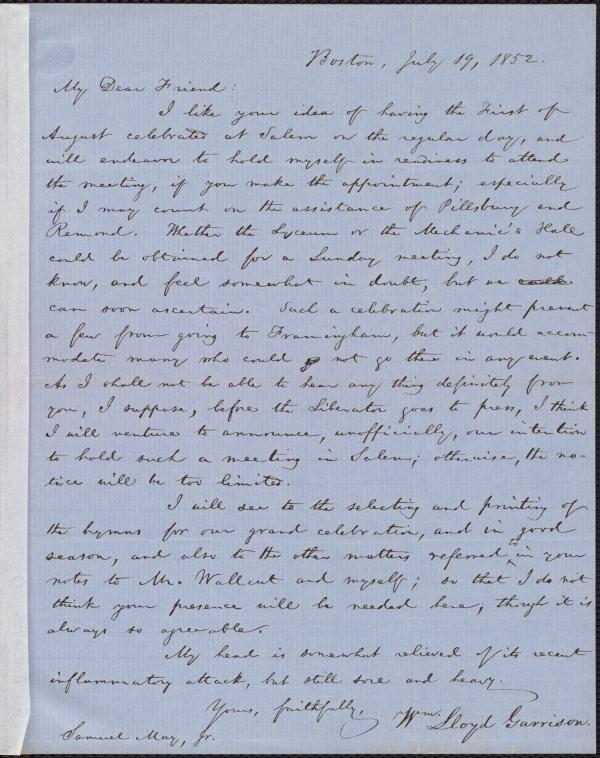 Boston, July 19, 1852.
My Dear Friend:
I like your idea of having the First of
August celebrated at Salem on the regular day, and
will endeavor to hold myself in readiness to attend
the meeting, if you make the appointment; especially
if I may count on the assistance of Pillsbury and
Remond. Whether the Lyceum or the Mechanic's Hall
could be obtained for a Sunday meeting, I do not
know, and feel somewhat in doubt, but we
can soon ascertain. Such a celebration might prevent
a few from going to Framingham, but it would accom-
modate many who could not go there in any event.
As I shall not be able to hear any thing definitely from
you, I suppose, before the Liberator goes to press, I think
I will venture to announce, unofficially, our intention
to hold such a meeting in Salem; otherwise, the no-
tice will be too limited.
I will see to the selecting and printing of
the hymns for our grand celebration, and in good
season, and also to the other matters referred to in your
notes to Mr. Wallcut and myself; so that I do not
think your presence will be needed here, though it is
always so agreeable.
My head is somewhat relieved of its recent
inflammatory attack, but still sore and heavy.
Yours, faithfully,
Wm. Lloyd Garrison.
Samuel May, Jr.